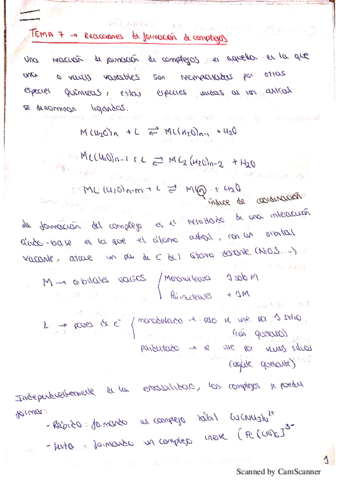 TEMA 7 → Reacciones de formación de complejos
Una reacción de formación de complejos es aquella en la que
una o varias variables son reemplazadas por otras
especies químicas, estas especies unidas al ion central
se denominan ligandos.
M(H2O)n + L ⇌ ML(H2O)n-1 + H2O
ML(H2O)n-1 + L ⇌ ML2(H2O)n-2 + H2O
ML(H2O)n-m + L ⇌ MLn + H2O
índice de coordinación
La formación del complejo es el resultado de una interacción
ácido-base en la que el átomo central, con un orbital
vacante, atrae un par de e⁻ del átomo donante (N,O,S...)
M → orbitales vacíos Mononucleares 1 solo M
Polinucleares + 1M
L → pares de e⁻ monodentado → se une por 1 sitio
polidentado → se une por varios sitios
(agente quelante)
Independientemente de la estabilidad, los complejos se pueden
formar:
- Rápido: formando un complejo lábil Cu(NH3)4 2+
- Lento: formando un complejo inerte [Fe(CN)6]3-
1
Scanned by CamScanner